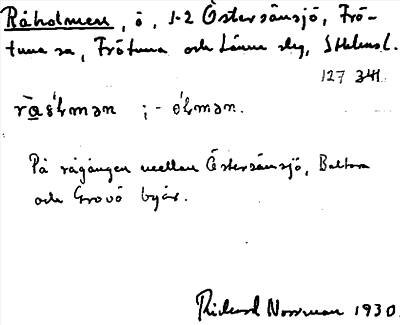 Råholmen, ö, 1-2 Östersånsjö, Frö-
tuna sn, Frötuna och Länna slg, Sthlms l.
127 341
på rågången mellan Östersånsjö, Baltora
och Grovö byar.
Rickard Norrman 1930.